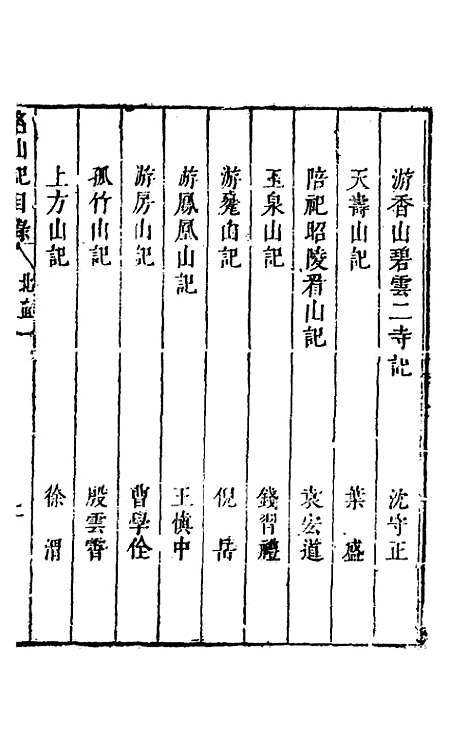 游香山碧雲二寺記 沈守正
天壽山記 葉盛
陪祀昭陵看山記 袁宏道
玉泉山記 錢習禮
游甕山記 倪岳
游鳳凰山記 王慎中
游房山記 曹學佺
孤竹山記 殷雲霄
上方山記 徐渭
名山記目錄 北直